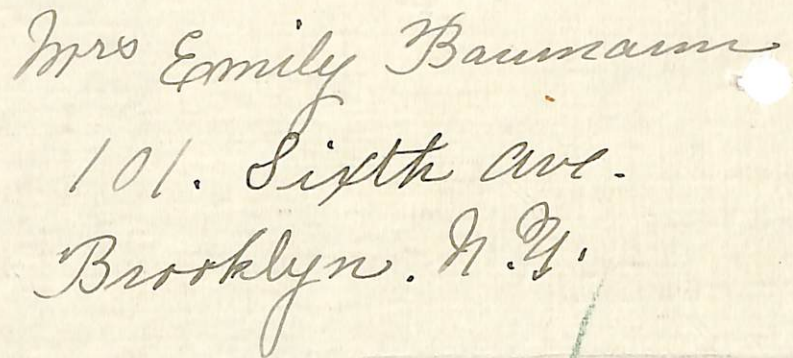 Mrs Emily Baumann
101. Sixth Ave.
Brooklyn. N.Y.